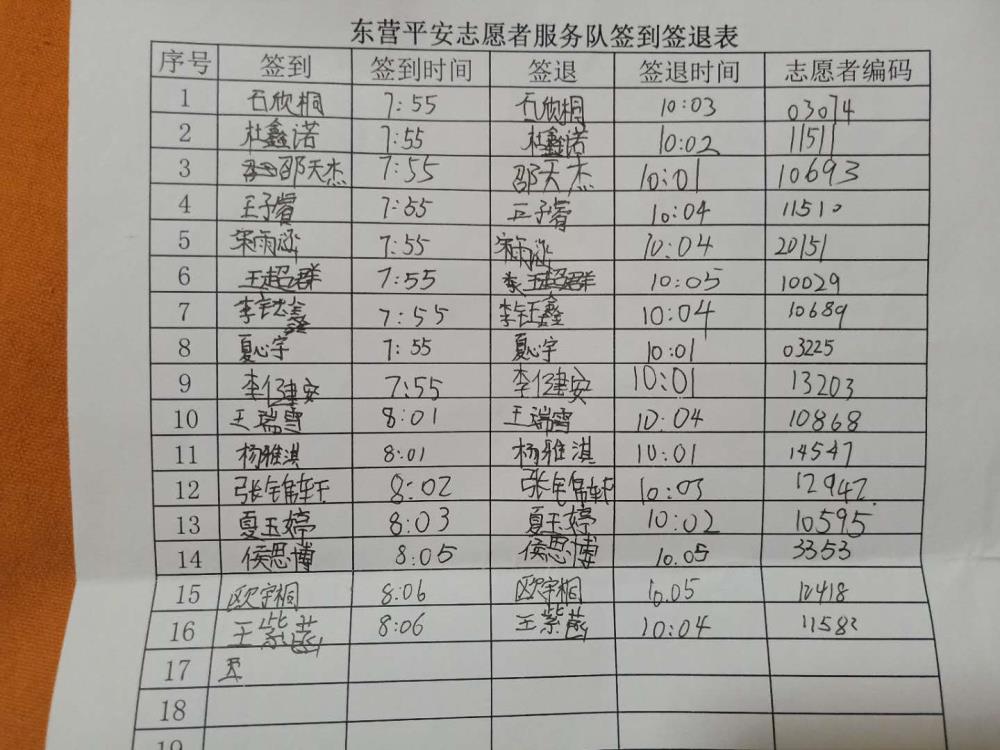 东营平安志愿者服务队签到签退表
序号 签到 签到时间 签退 签退时间 志愿者编码
1 石欣桐 7:55 石欣桐 10:03 03074
2 杜鑫诺 7:55 杜鑫诺 10:02 11511
3 邵天杰 7:55 邵天杰 10:01 10693
4 王子睿 7:55 王子睿 10:04 11510
5 宋雨涵 7:55 宋雨涵 10:04 20151
6 王超群 7:55 王超群 10:05 10029
7 李钰鑫 7:55 李钰鑫 10:04 10689
8 夏心宇 7:55 夏心宇 10:01 03225
9 李健安 7:55 李健安 10:01 13203
10 王瑞雪 8:01 王瑞雪 10:04 10868
11 杨雅淇 8:01 杨雅淇 10:01 14547
12 张锦轩 8:02 张锦轩 10:03 12942
13 夏玉婷 8:03 夏玉婷 10:02 10595
14 侯思博 8:05 侯思博 10.05 3353
15 欧宇桐 8:06 欧宇桐 10.05 12418
16 王紫菡 8:06 王紫菡 10:04 11582
17
18
19